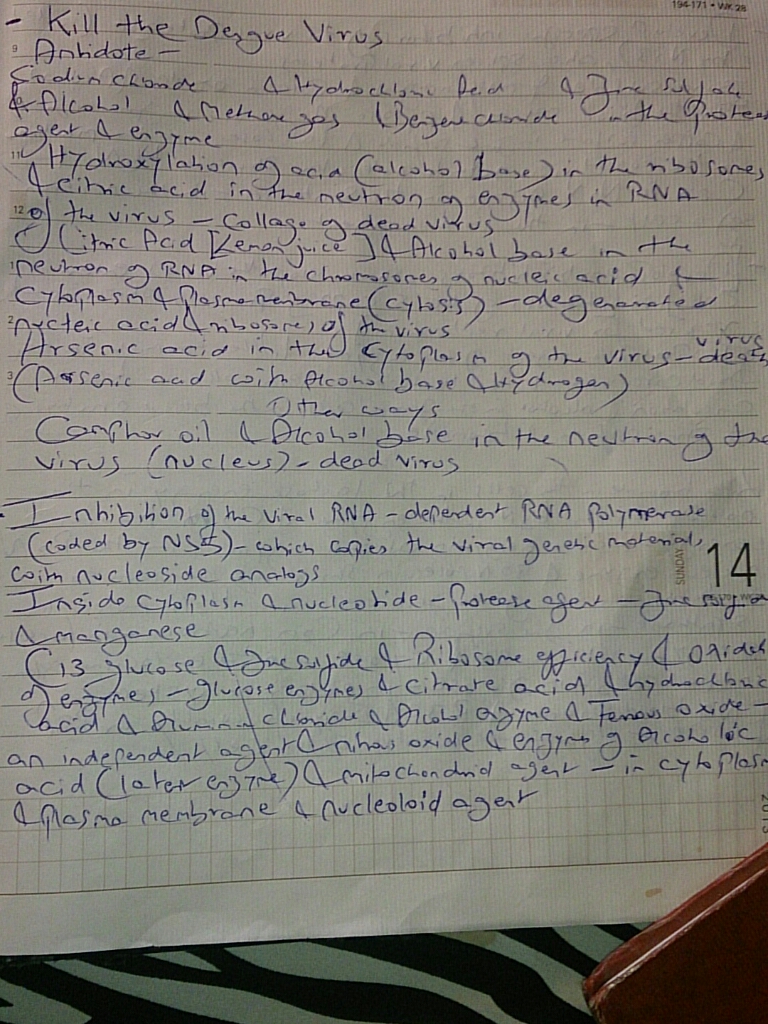 194-171 • WK 28
- Kill the Dengue Virus
9 Antidote -
Sodium chloride & Hydrochloric Acid & Zinc sulfide
& Alcohol & Methane gas (Benzene chloride in the Protease
agent & enzyme
11 Hydroxylation of acid (alcohol base) in the ribosomes
& citric acid in the neutron of enzymes in RNA
12 of the virus - collage of dead virus
Citric Acid [Lemon juice] & Alcohol base in the
neutron of RNA in the chromosomes of nucleic acid &
Cytoplasm & Plasma membrane (cytosis) - degenerated
2 nucleic acid (ribosomes) of the virus
Arsenic acid in the cytoplasm of the virus - virus death
3 (Arsenic acid with Alcohol base & Hydrogen)
Other ways
Camphor oil & Alcohol base in the neutron of the
virus (nucleus) - dead virus
- Inhibition of the viral RNA - dependent RNA Polymerase
(coded by NS5) - which copies the viral genetic material,
with nucleoside analogs
SUNDAY 14
Inside Cytoplasm & nucleotide - Protease agent - Zinc
& manganese
C13 glucose & Zinc sulfide & Ribosome efficiency & oxides
of enzymes - glucose enzymes & citrate acid & hydrochloric
acid & Aluminium chloride & Alcohol enzyme & Ferrous oxide -
an independent agent & nitrous oxide & enzyme of alcoholic
acid (later enzyme) & mitochondrid agent - in cytoplasm
& plasma membrane & nucleoloid agent